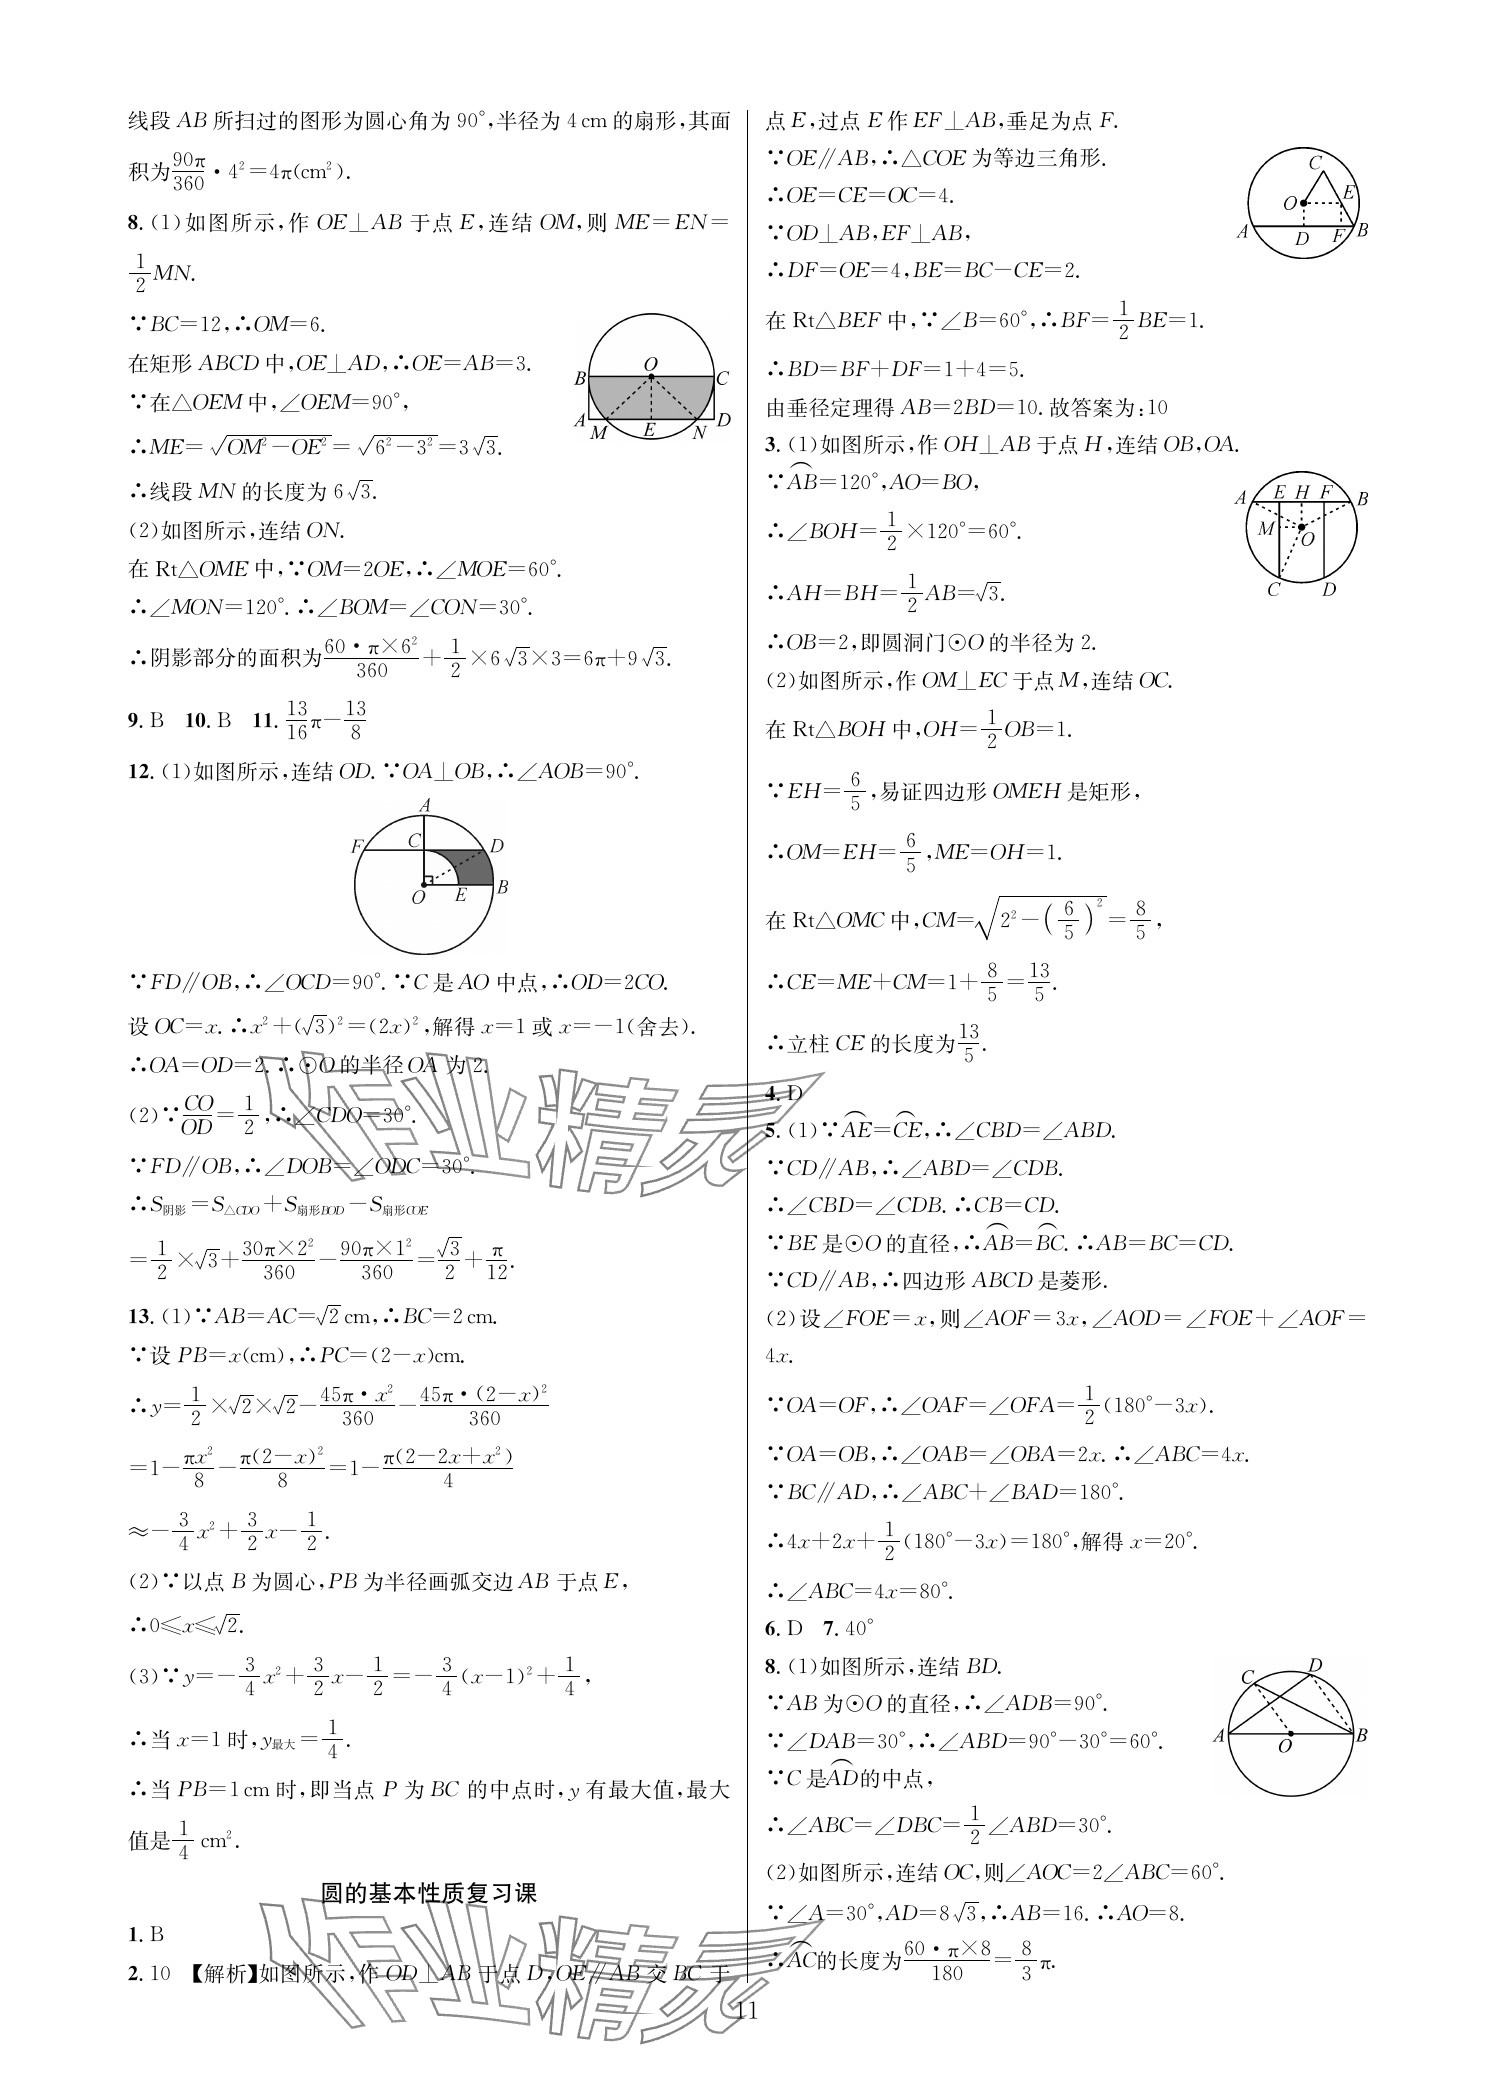 线段 AB 所扫过的图形为圆心角为 90°,半径为 4 cm 的扇形,其面
积为90π/360·4²=4π(cm²).
8. (1)如图所示,作 OE⊥AB 于点 E,连结 OM,则 ME=EN=
1/2MN.
∵BC=12,∴OM=6.
在矩形 ABCD 中,OE⊥AD,∴OE=AB=3.
∵在△OEM 中,∠OEM=90°,
∴ME=√(OM²-OE²)=√(6²-3²)=3√3.
∴线段 MN 的长度为 6√3.
O
B C
A M E N D
(2)如图所示,连结 ON.
在 Rt△OME 中,∵OM=2OE,∴∠MOE=60°.
∴∠MON=120°. ∴∠BOM=∠CON=30°.
∴阴影部分的面积为60·π×6²/360+1/2×6√3×3=6π+9√3.
9. B 10. B 11. 13/16π-13/8
12. (1)如图所示,连结 OD. ∵OA⊥OB,∴∠AOB=90°.
A
F C D
O E B
∵FD∥OB,∴∠OCD=90°. ∵C 是 AO 中点,∴OD=2CO.
设 OC=x. ∴x²+(√3)²=(2x)²,解得 x=1 或 x=-1(舍去).
∴OA=OD=2. ∴⊙O 的半径 OA 为 2.
(2)∵CO/OD=1/2,∴∠CDO=30°.
∵FD∥OB,∴∠DOB=∠ODC=30°.
∴S阴影=S△CDO+S扇形BOD-S扇形COE
=1/2×√3+30π×2²/360-90π×1²/360=√3/2+π/12.
13. (1)∵AB=AC=√2 cm,∴BC=2 cm.
∵设 PB=x(cm),∴PC=(2-x)cm.
∴y=1/2×√2×√2-45π·x²/360-45π·(2-x)²/360
=1-πx²/8-π(2-x)²/8=1-π(2-2x+x²)/4
≈-3/4x²+3/2x-1/2.
(2)∵以点 B 为圆心,PB 为半径画弧交边 AB 于点 E,
∴0≤x≤√2.
(3)∵y=-3/4x²+3/2x-1/2=-3/4(x-1)²+1/4,
∴当 x=1 时,y最大=1/4.
∴当 PB=1 cm 时,即当点 P 为 BC 的中点时,y 有最大值,最大
值是1/4 cm².
圆的基本性质复习课
1. B
2. 10 【解析】如图所示,作 OD⊥AB 于点 D,OE∥AB 交 BC 于
点 E,过点 E 作 EF⊥AB,垂足为点 F.
∵OE∥AB,∴△COE 为等边三角形.
∴OE=CE=OC=4.
∵OD⊥AB,EF⊥AB,
∴DF=OE=4,BE=BC-CE=2.
C
O E
A D F B
在 Rt△BEF 中,∵∠B=60°,∴BF=1/2BE=1.
∴BD=BF+DF=1+4=5.
由垂径定理得 AB=2BD=10. 故答案为:10
3. (1)如图所示,作 OH⊥AB 于点 H,连结 OB,OA.
∵⌒AB=120°,AO=BO,
∴∠BOH=1/2×120°=60°.
∴AH=BH=1/2AB=√3.
A E H F B
M O
C D
∴OB=2,即圆洞门⊙O 的半径为 2.
(2)如图所示,作 OM⊥EC 于点 M,连结 OC.
在 Rt△BOH 中,OH=1/2OB=1.
∵EH=6/5,易证四边形 OMEH 是矩形,
∴OM=EH=6/5,ME=OH=1.
在 Rt△OMC 中,CM=√(2²-(6/5)²)=8/5,
∴CE=ME+CM=1+8/5=13/5.
∴立柱 CE 的长度为13/5.
4. D
5. (1)∵⌒AE=⌒CE,∴∠CBD=∠ABD.
∵CD∥AB,∴∠ABD=∠CDB.
∴∠CBD=∠CDB. ∴CB=CD.
∵BE 是⊙O 的直径,∴⌒AB=⌒BC. ∴AB=BC=CD.
∵CD∥AB,∴四边形 ABCD 是菱形.
(2)设∠FOE=x,则∠AOF=3x,∠AOD=∠FOE+∠AOF=
4x.
∵OA=OF,∴∠OAF=∠OFA=1/2(180°-3x).
∵OA=OB,∴∠OAB=∠OBA=2x. ∴∠ABC=4x.
∵BC∥AD,∴∠ABC+∠BAD=180°.
∴4x+2x+1/2(180°-3x)=180°,解得 x=20°.
∴∠ABC=4x=80°.
6. D 7. 40°
8. (1)如图所示,连结 BD.
∵AB 为⊙O 的直径,∴∠ADB=90°.
∵∠DAB=30°,∴∠ABD=90°-30°=60°.
∵C 是⌒AD的中点,
∴∠ABC=∠DBC=1/2∠ABD=30°.
C D
A O B
(2)如图所示,连结 OC,则∠AOC=2∠ABC=60°.
∵∠A=30°,AD=8√3,∴AB=16. ∴AO=8.
∴⌒AC的长度为60·π×8/180=8/3π.
11
作业精灵
作业精灵